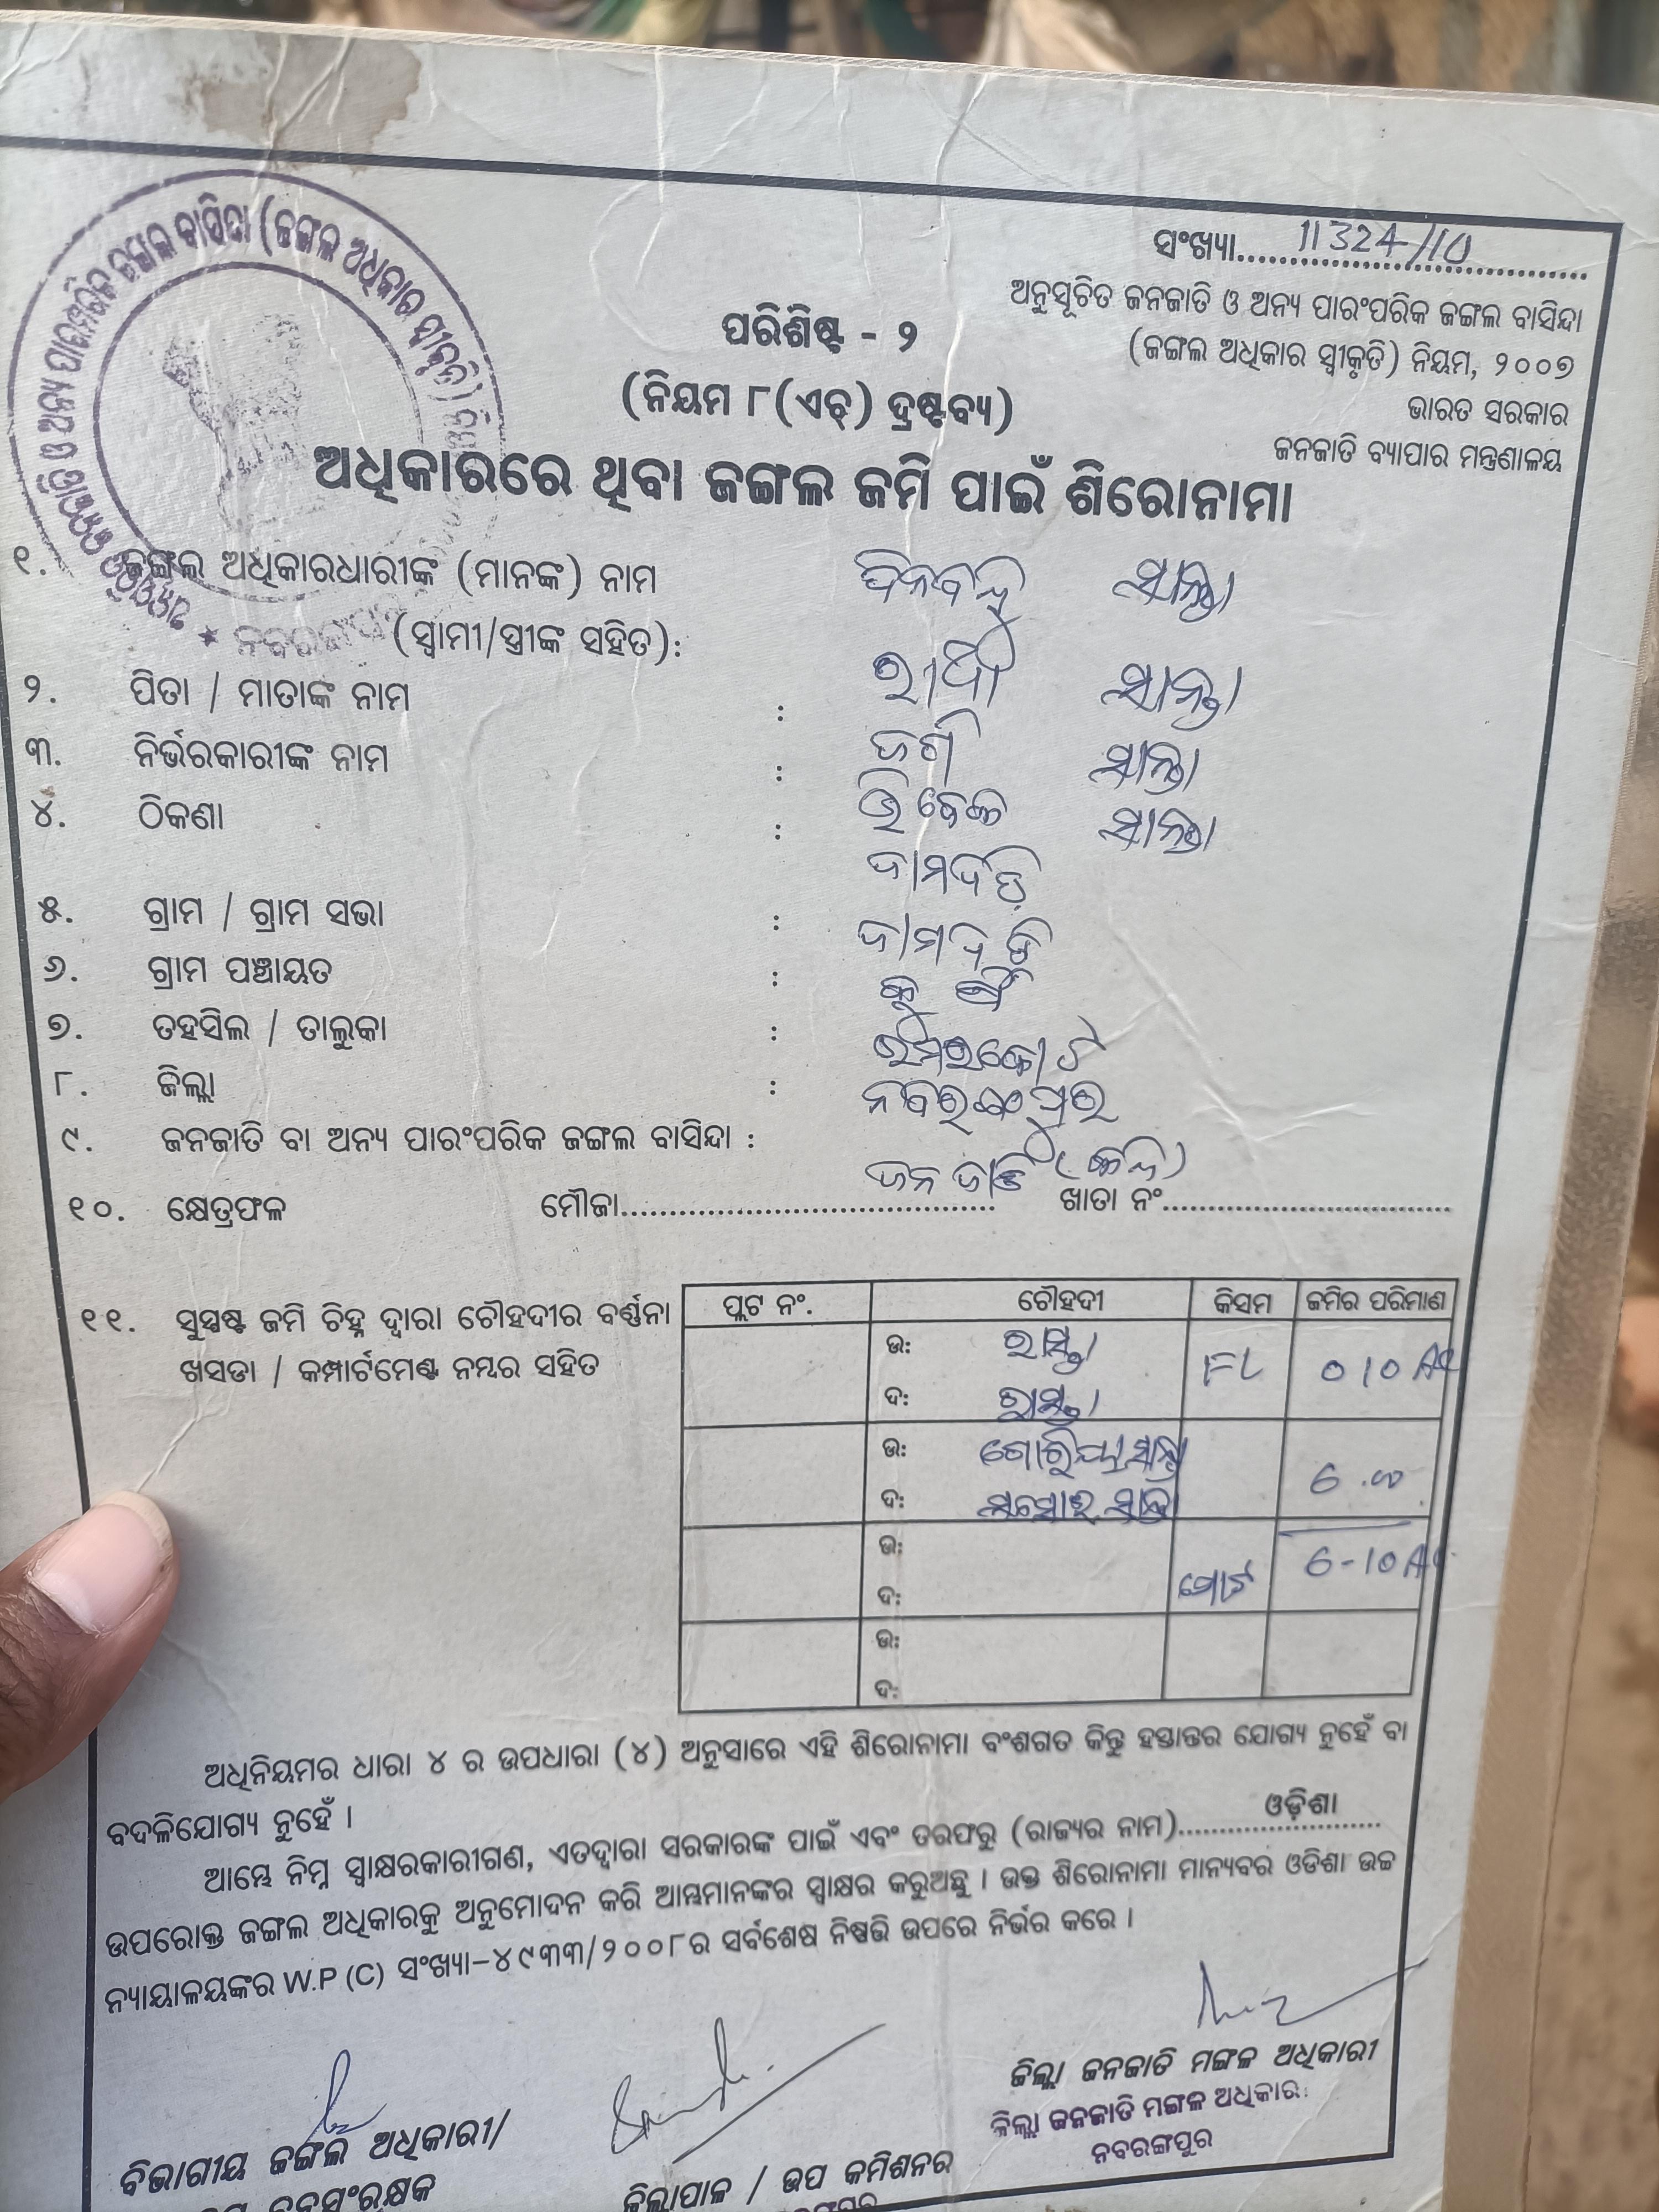 ସଂଖ୍ୟା.... 11324/10
ଅନୁସୂଚିତ ଜନଜାତି ଓ ଅନ୍ୟ ପାରଂପରିକ ଜଙ୍ଗଲ ବାସିନ୍ଦା
(ଜଙ୍ଗଲ ଅଧିକାର ସ୍ୱୀକୃତି) ନିୟମ, ୨୦୦୭
ଭାରତ ସରକାର
ଜନଜାତି ବ୍ୟାପାର ମନ୍ତ୍ରଣାଳୟ
ପରିଶିଷ୍ଟ - ୨
(ନିୟମ ୮(ଏଚ୍) ଦ୍ରଷ୍ଟବ୍ୟ)
ଅଧିକାରରେ ଥିବା ଜଙ୍ଗଲ ଜମି ପାଇଁ ଶିରୋନାମା
୧. ଜଙ୍ଗଲ ଅଧିକାରଧାରୀଙ୍କ (ମାନଙ୍କ) ନାମ ଦିନବନ୍ଧୁ ସାନ୍ତା
(ସ୍ୱାମୀ/ସ୍ତ୍ରୀଙ୍କ ସହିତ): ସାନ୍ତା
୨. ପିତା / ମାତାଙ୍କ ନାମ : ସାନ୍ତା
୩. ନିର୍ଭରକାରୀଙ୍କ ନାମ : ସାନ୍ତା
୪. ଠିକଣା :
୫. ଗ୍ରାମ / ଗ୍ରାମ ସଭା :
୬. ଗ୍ରାମ ପଞ୍ଚାୟତ :
୭. ତହସିଲ / ତାଲୁକା : ଉମରକୋଟ
୮. ଜିଲ୍ଲା : ନବରଙ୍ଗପୁର
୯. ଜନଜାତି ବା ଅନ୍ୟ ପାରଂପରିକ ଜଙ୍ଗଲ ବାସିନ୍ଦା : ଜନଜାତି
୧୦. କ୍ଷେତ୍ରଫଳ ମୌଜା.... ଖାତା ନଂ....
୧୧. ସୁସ୍ପଷ୍ଟ ଜମି ଚିହ୍ନ ଦ୍ୱାରା ଚୌହଦୀର ବର୍ଣ୍ଣନା
ଖସଡା / କମ୍ପାର୍ଟମେଣ୍ଟ ନମ୍ବର ସହିତ
ପ୍ଲଟ ନଂ. ଚୌହଦୀ କିସମ ଜମିର ପରିମାଣ
ଉ: ରାସ୍ତା FL 010 AC
ଦ: ରାସ୍ତା
ଉ: ସାନ୍ତା 6.00
ଦ: ସାନ୍ତା
ଉ: 6-10 AC
ଦ: ମୋଟ
ଉ:
ଦ:
ଅଧିନିୟମର ଧାରା ୪ ର ଉପଧାରା (୪) ଅନୁସାରେ ଏହି ଶିରୋନାମା ବଂଶଗତ କିନ୍ତୁ ହସ୍ତାନ୍ତର ଯୋଗ୍ୟ ନୁହେଁ ବା
ବଦଳିଯୋଗ୍ୟ ନୁହେଁ ।
ଆମ୍ଭେ ନିମ୍ନ ସ୍ୱାକ୍ଷରକାରୀଗଣ, ଏତଦ୍ୱାରା ସରକାରଙ୍କ ପାଇଁ ଏବଂ ତରଫରୁ (ରାଜ୍ୟର ନାମ).... ଓଡ଼ିଶା
ଉପରୋକ୍ତ ଜଙ୍ଗଲ ଅଧିକାରକୁ ଅନୁମୋଦନ କରି ଆମ୍ଭମାନଙ୍କର ସ୍ୱାକ୍ଷର କରୁଅଛୁ । ଉକ୍ତ ଶିରୋନାମା ମାନ୍ୟବର ଓଡିଶା ଉଚ୍ଚ
ନ୍ୟାୟାଳୟଙ୍କର W.P (C) ସଂଖ୍ୟା-୪୯୩୩/୨୦୦୮ର ସର୍ବଶେଷ ନିଷ୍ପତ୍ତି ଉପରେ ନିର୍ଭର କରେ ।
ଜିଲ୍ଲା ଜନଜାତି ମଙ୍ଗଳ ଅଧିକାରୀ
ଜିଲ୍ଲା ଜନଜାତି ମଙ୍ଗଳ ଅଧିକାରୀ
ନବରଙ୍ଗପୁର
ବିଭାଗୀୟ ଜଙ୍ଗଲ ଅଧିକାରୀ/
ଜିଲ୍ଲାପାଳ / ଉପ କମିଶନର